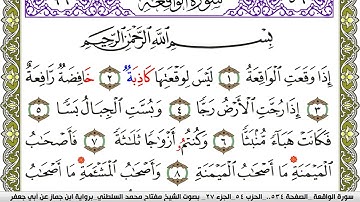 سُورَةُ الوَاقِعَةِ
بِسْمِ اللَّهِ الرَّحْمَٰنِ الرَّحِيمِ
إِذَا وَقَعَتِ الْوَاقِعَةُ ١ لَيْسَ لِوَقْعَتِهَا كَاذِبَةٌ ٢ خَافِضَةٌ رَافِعَةٌ
٣ إِذَا رُجَّتِ الْأَرْضُ رَجًّا ٤ وَبُسَّتِ الْجِبَالُ بَسًّا ٥
فَكَانَتْ هَبَاءً مُنْبَثًّا ٦ وَكُنْتُمُ أَزْوَاجًا ثَلَاثَةً ٧ فَأَصْحَابُ
الْمَيْمَنَةِ مَا أَصْحَابُ الْمَيْمَنَةِ ٨ وَأَصْحَابُ الْمَشْئَمَةِ مَا أَصْحَابُ
سورة الواقعة _ الصفحة ٥٣٤ _ الحزب ٥٤ _ الجزء ٢٧ _ بصوت الشيخ مفتاح محمد السلطني برواية ابن جماز عن أبي جعفر